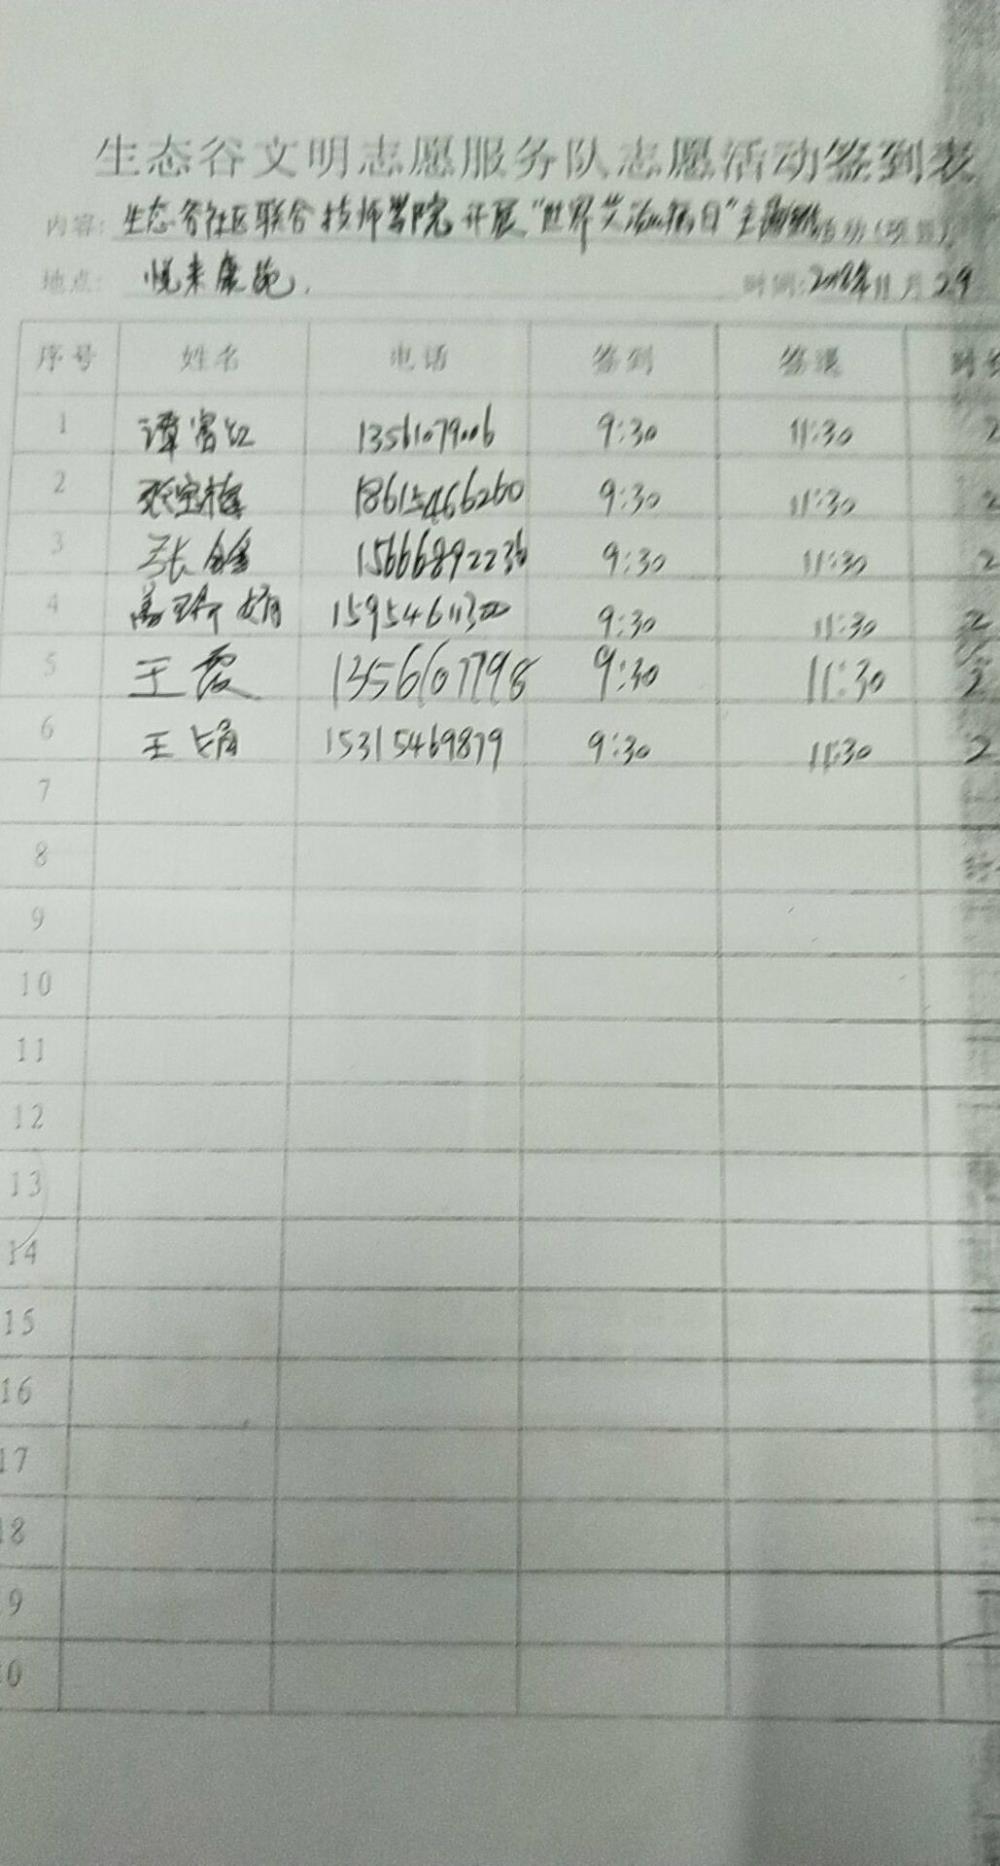 生态谷文明志愿服务队志愿活动签到表
内容: 生态谷社区联合技师学院开展"世界艾滋病日"主题 活动(项目)
地点: 悦来康苑. 时间: 11月29
序号 姓名 电话 签到 签退 时长
1 谭富红 13561079006 9:30 11:30 2
2 张宝梅 18615466260 9:30 11:30 2
3 张鑫 15666892236 9:30 11:30 2
4 高珍娟 15954611300 9:30 11:30 2
5 王霞 13561607798 9:30 11:30 2
6 王娟 15315469879 9:30 11:30 2
7
8
9
10
11
12
13
14
15
16
17
18
9
0